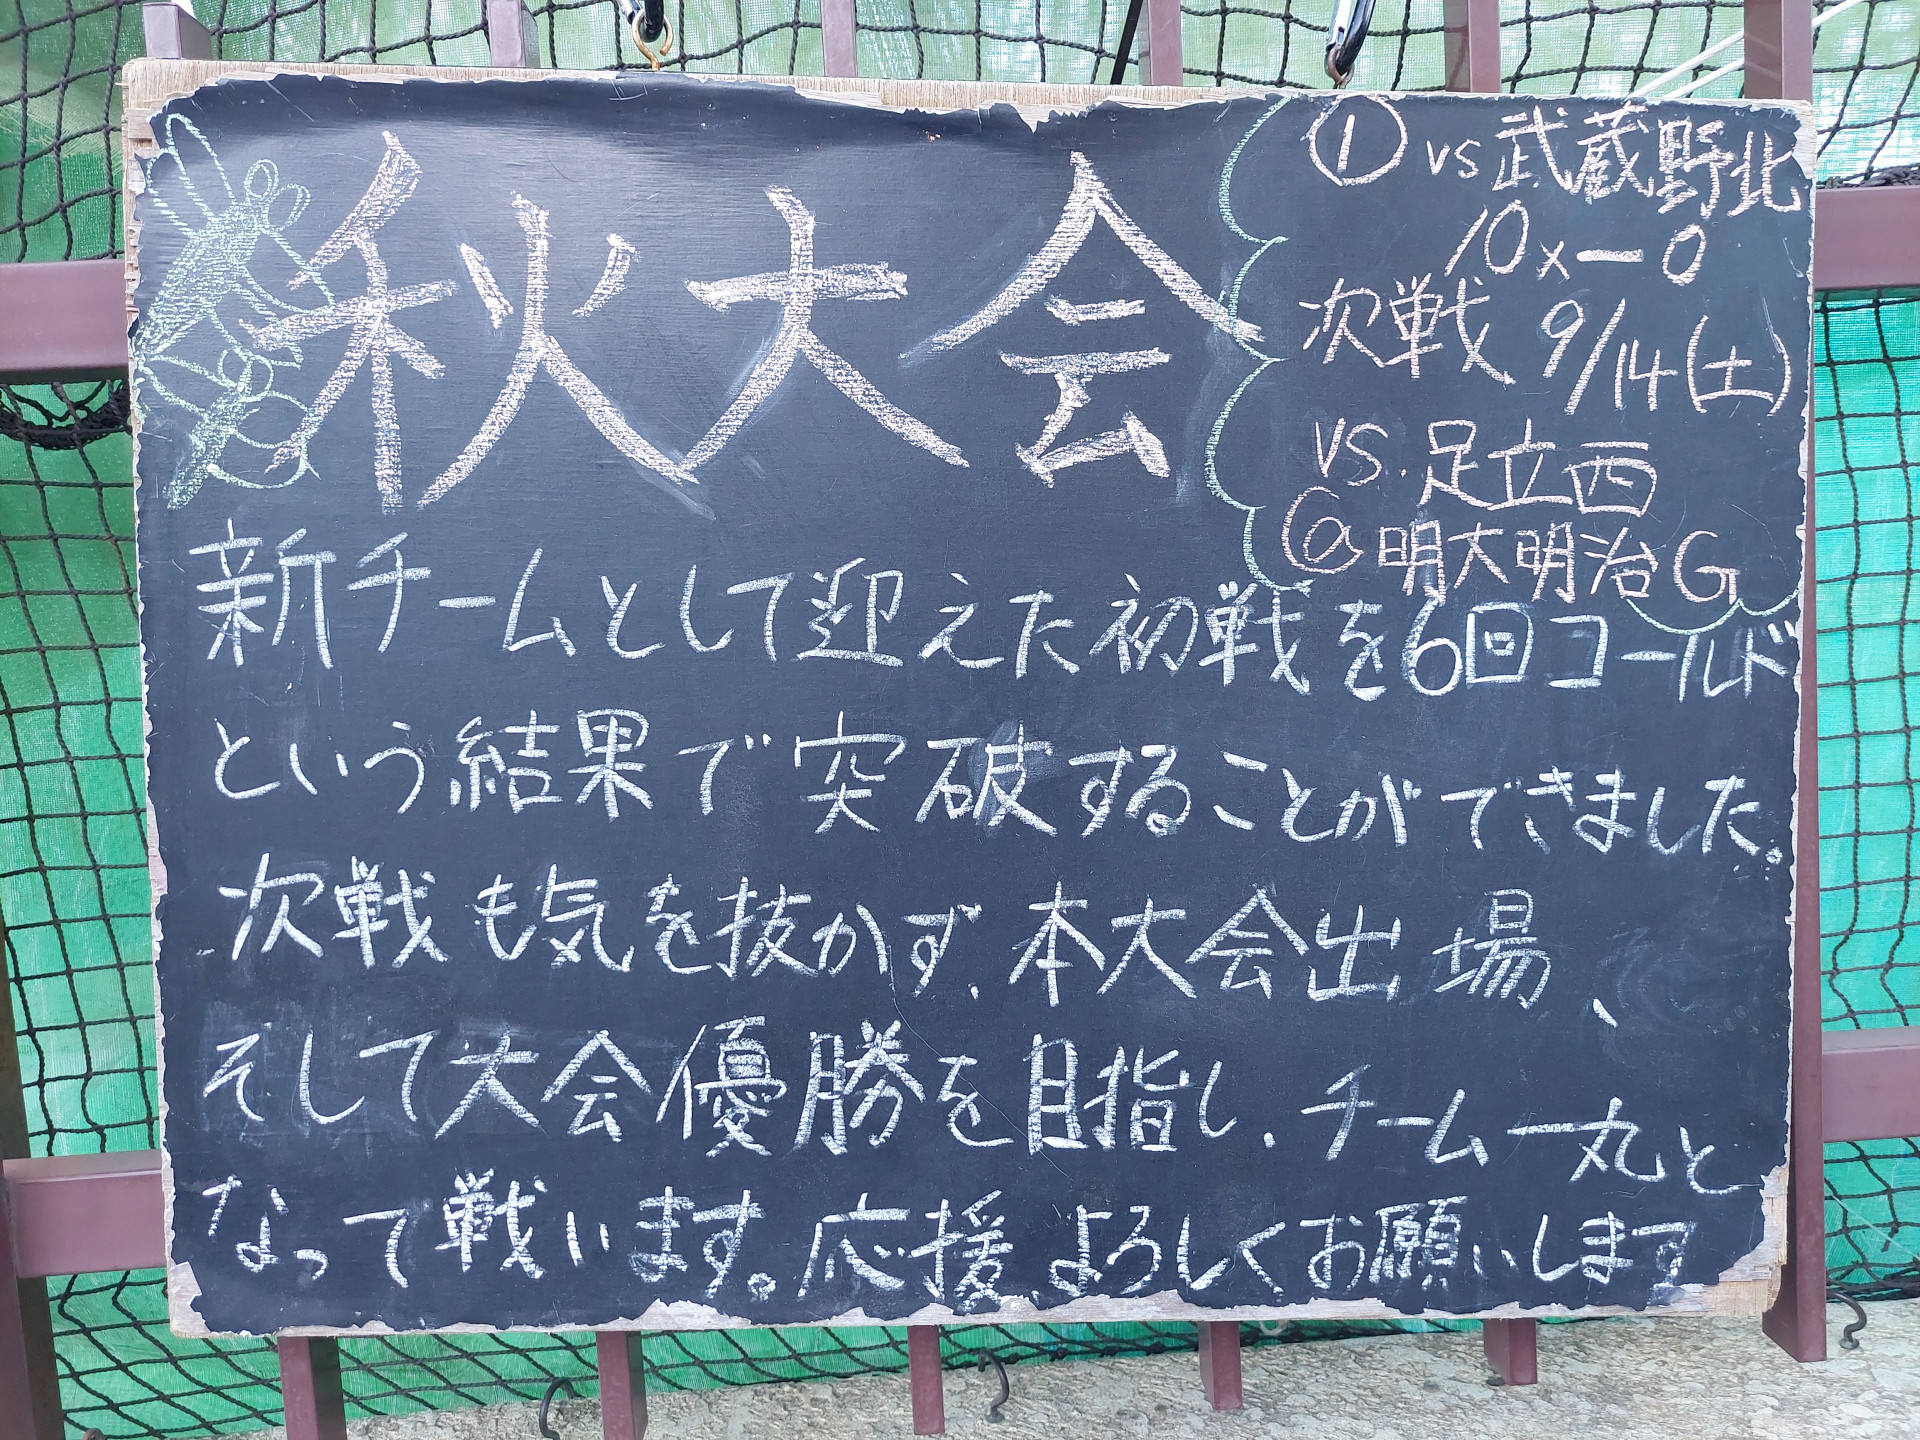 秋大会
① vs 武蔵野北
10x-0
次戦 9/14(土)
vs. 足立西
@明大明治G
新チームとして迎えた初戦を6回コールド
という結果で突破することができました。
次戦も気を抜かず、本大会出場、
そして大会優勝を目指し、チーム一丸と
なって戦います。応援よろしくお願いします